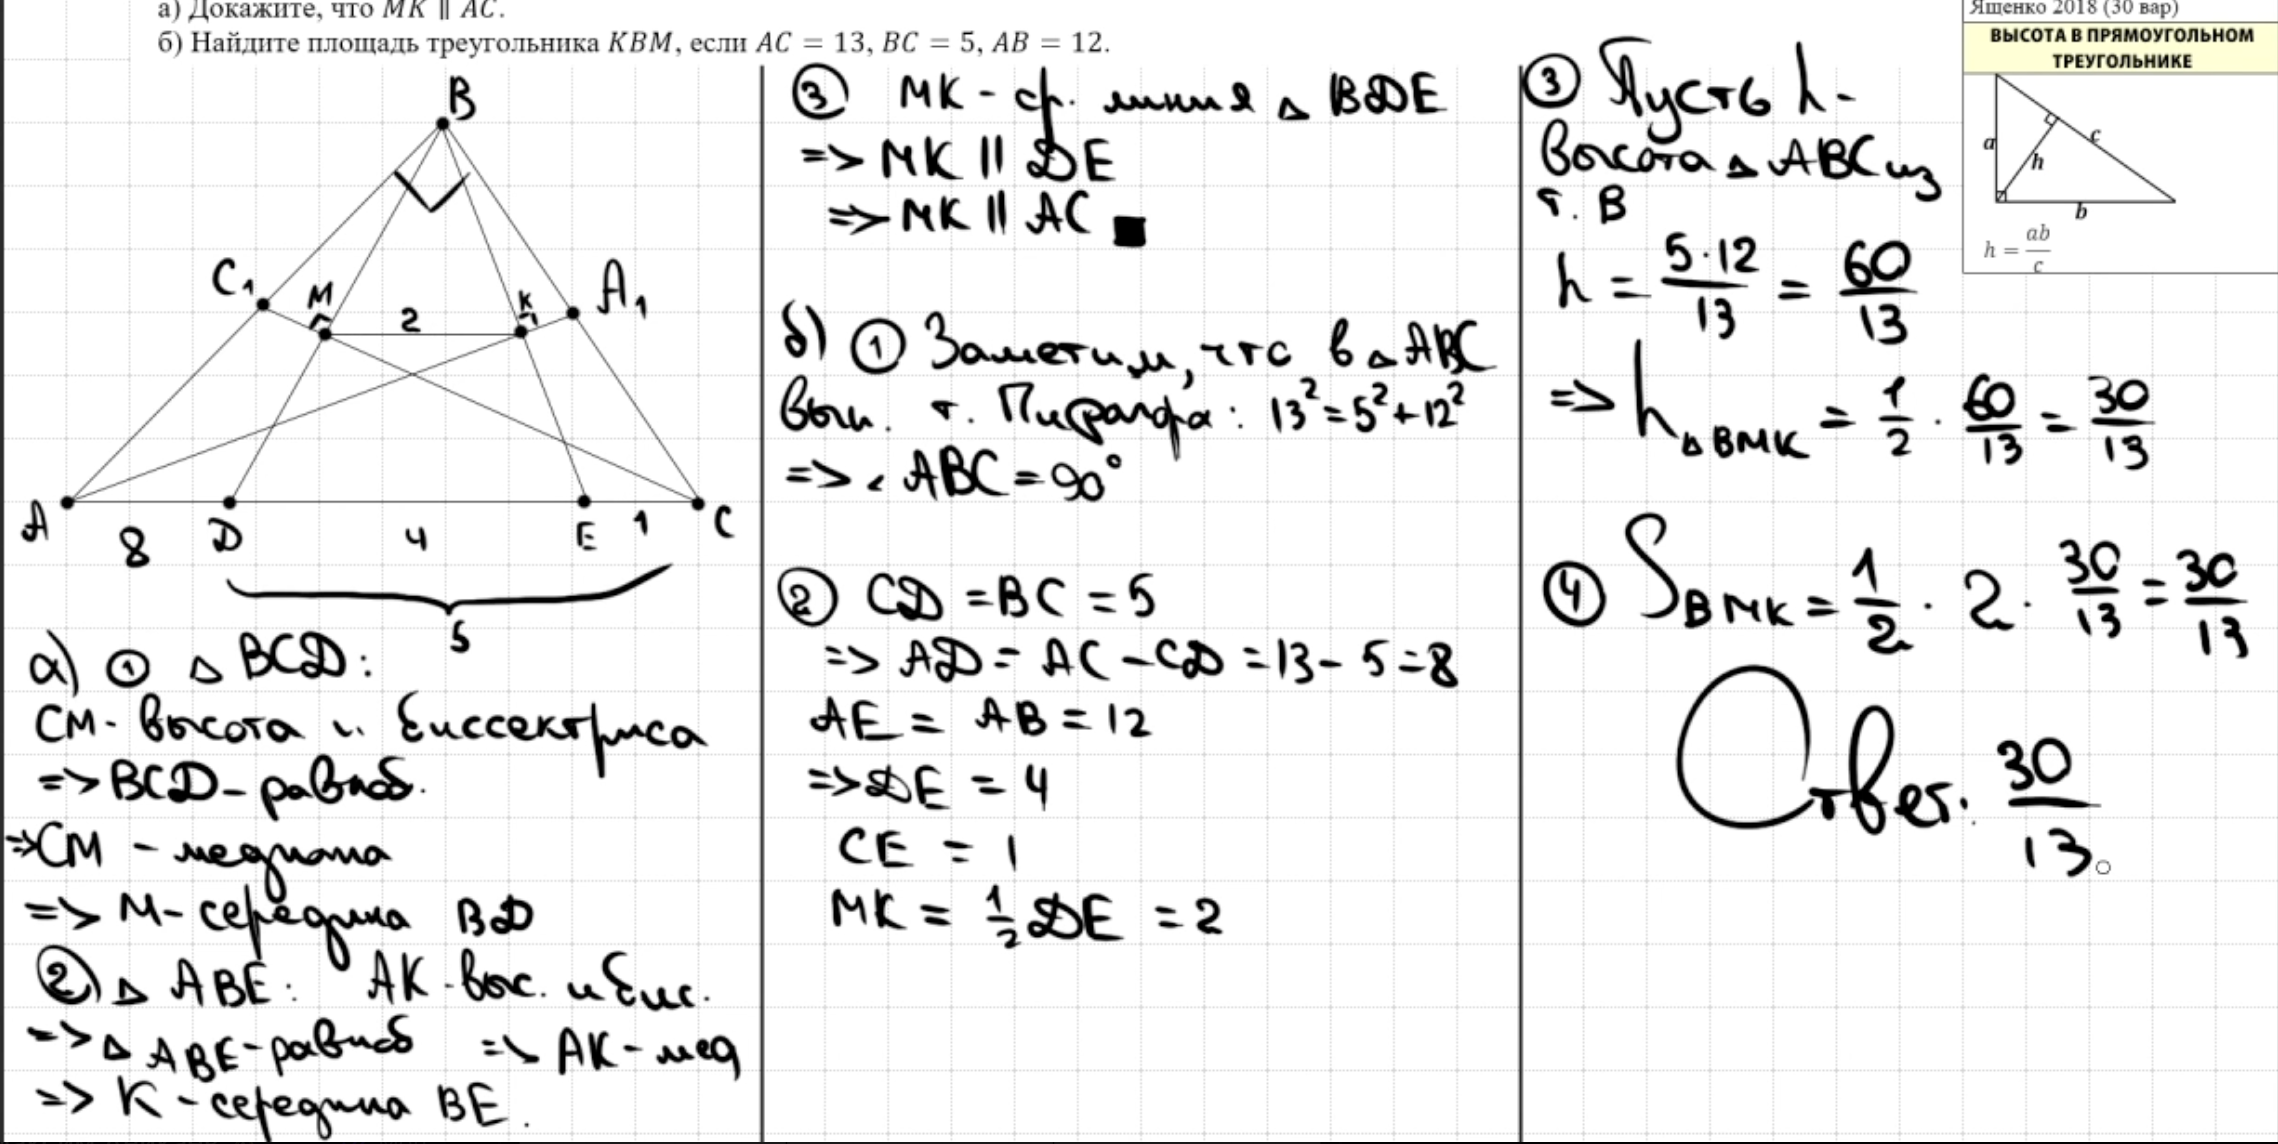 а) Докажите, что MK ∥ AC.
б) Найдите площадь треугольника KBM, если AC = 13, BC = 5, AB = 12.
B
C₁
M
2
K
A₁
A
8
D
4
E
1
C
5
а) ① △ BCD:
CM - высота и биссектриса
=> BCD - равноб.
=> CM - медиана
=> M - середина BD
② △ ABE: AK - выс. и бис.
=> △ ABE - равноб => AK - мед
=> K - середина BE.
③ MK - ср. линия △ BDE
=> MK ∥ DE
=> MK ∥ AC ■
б) ① Заметим, что в △ ABC
вып. т. Пифагора: 13² = 5² + 12²
=> ∠ ABC = 90°
② CD = BC = 5
=> AD = AC - CD = 13 - 5 = 8
AE = AB = 12
=> DE = 4
CE = 1
MK = 1/2 DE = 2
③ Пусть h -
высота △ ABC из
т. B
h = 5·12/13 = 60/13
=> h△BMK = 1/2 · 60/13 = 30/13
④ S BMK = 1/2 · 2 · 30/13 = 30/13
Ответ: 30/13.
Ященко 2018 (30 вар)
ВЫСОТА В ПРЯМОУГОЛЬНОМ
ТРЕУГОЛЬНИКЕ
a
h
c
b
h = ab/c